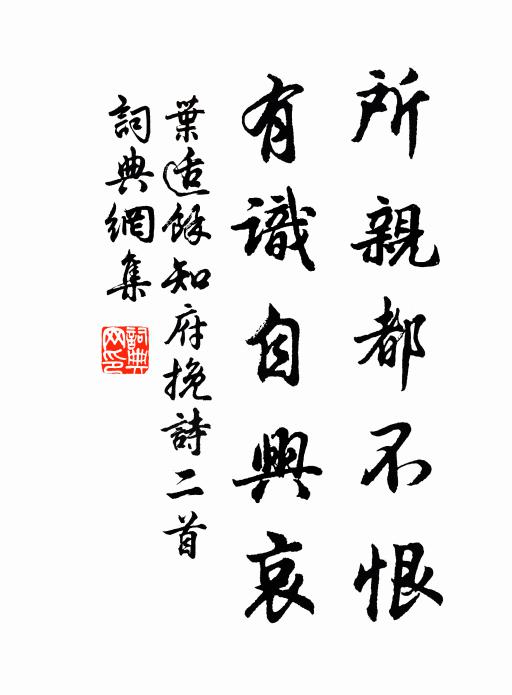 所親都不恨
有識自興哀
葉适餘知府挽詩二首
詞典網集
詞典網印